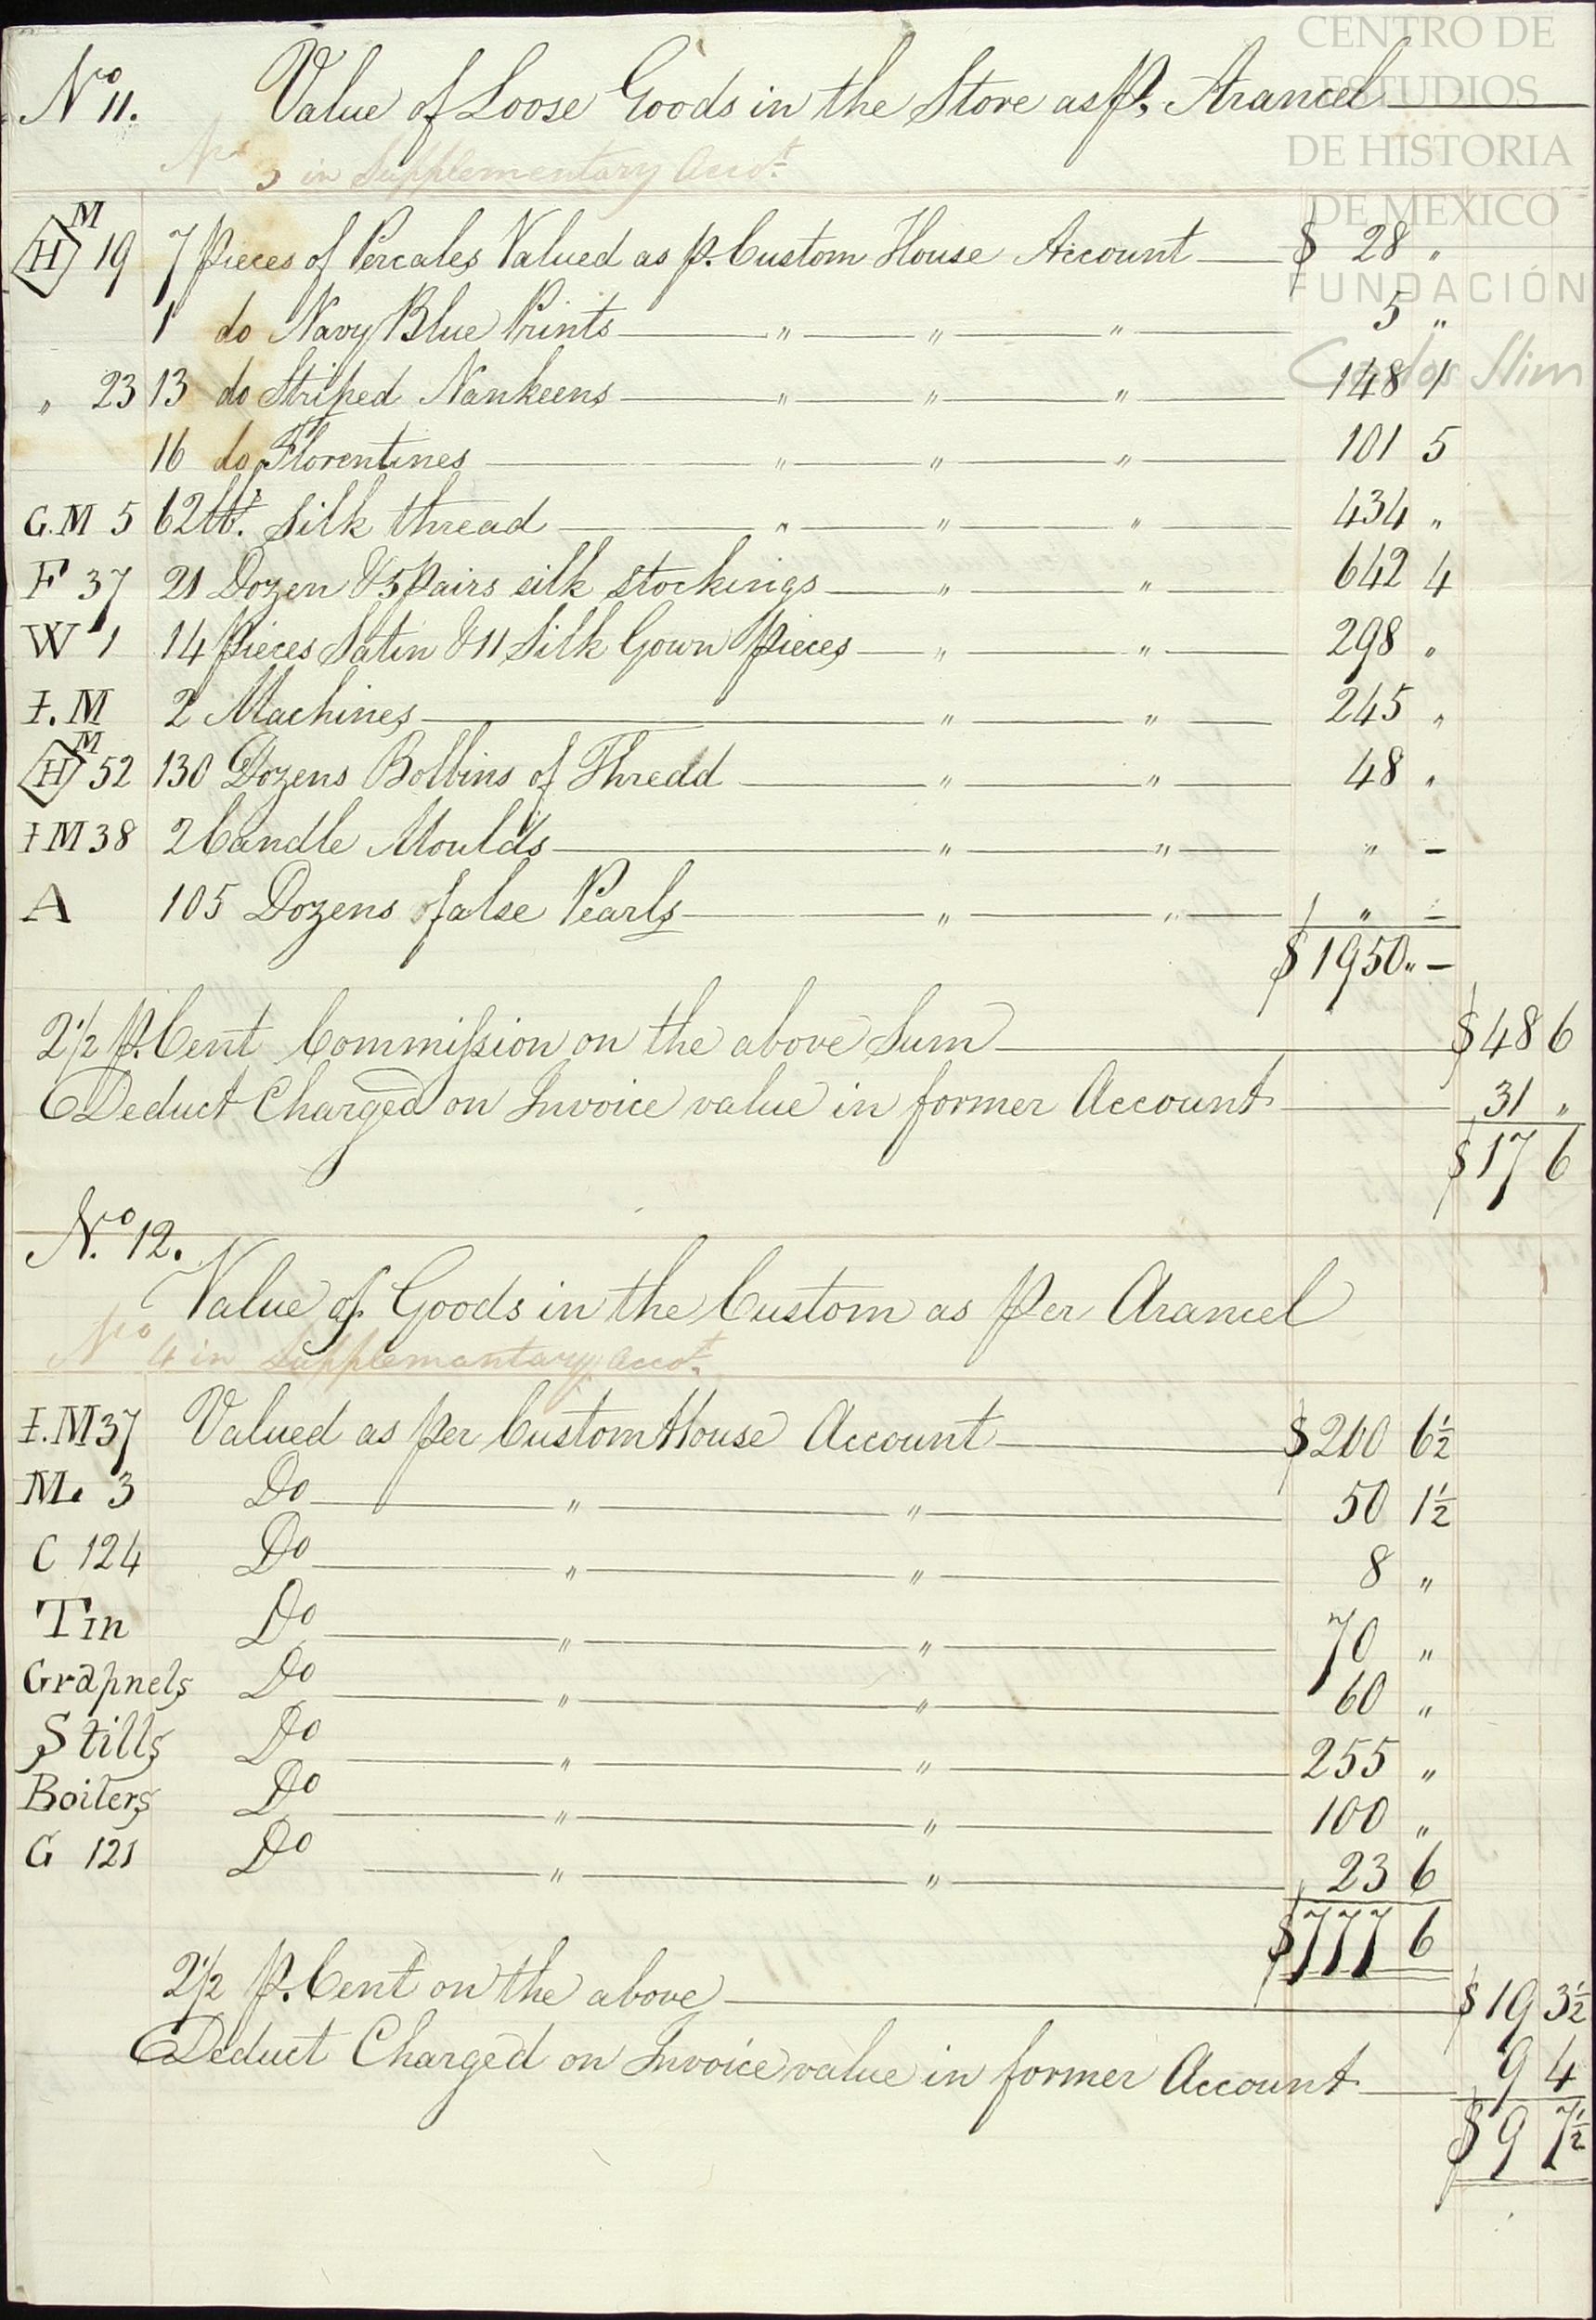 CENTRO DE
ESTUDIOS
DE HISTORIA
DE MEXICO
FUNDACIÓN
Carlos Slim
No 11. Value of Loose Goods in the Store as p. Arancel
No 3 in Supplementary Accot.
H M 19 7 Pieces of Percales Valued as p. Custom House Account $ 28 "
1 do Navy Blue Prints " " " 5 "
" 23 13 do Striped Nankeens " " " 148 1
16 do Florentines " " " 101 5
G.M 5 62 lb. Silk thread " " " 434 "
F 37 21 Dozen & 5 Pairs silk stockings " " 642 4
W 1 14 Pieces Satin & 11 Silk Gown Pieces " " 298 "
I.M 2 Machines " " 245 "
H M 52 130 Dozens Bobbins of Thredd " " 48 "
I M 38 2 Candle Moulds " " " –
A 105 Dozens false Pearls " " " –
$ 1950 " –
2 1/2 P. Cent Commission on the above Sum $ 48 6
Deduct Charged on Invoice value in former Account 31 "
$ 17 6
No. 12.
Value of Goods in the Custom as Per Arancel
No 4 in Supplementary Accot.
I.M 37 Valued as Per Custom House Account $ 210 6 1/2
M. 3 Do " " 50 1 1/2
C 124 Do " " 8 "
Tin Do " " 70 "
Grapnels Do " " 60 "
Stills Do " " 255 "
Boilers Do " " 100 "
G 121 Do " " 23 6
$ 777 6
2 1/2 P. Cent on the above $ 19 3 1/2
Deduct Charged on Invoice value in former Account 9 4
$ 9 7 1/2